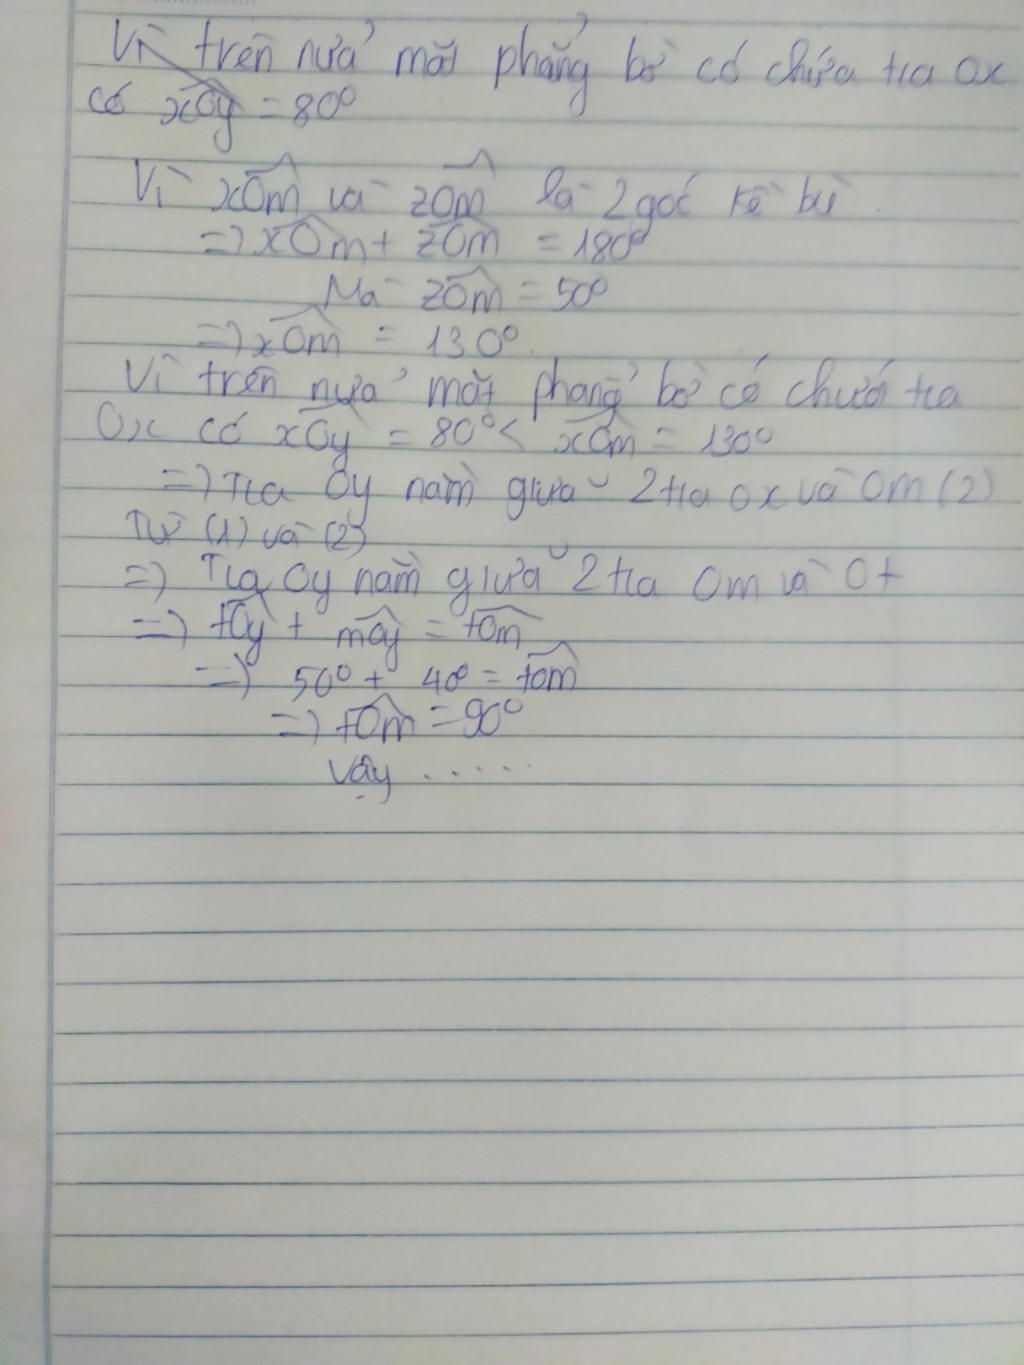 Vì trên nửa mặt phẳng bờ có chứa tia Ox
có xOy = 80°
Vì xOm và zOm là 2 góc kề bù.
=> xOm + zOm = 180°
Mà zOm = 50°
=> xOm = 130°.
Vì trên nửa mặt phẳng bờ có chứa tia
Ox có xOy = 80° < xOm = 130°
=> Tia Oy nằm giữa 2 tia Ox và Om (2)
Từ (1) và (2)
=> Tia Oy nằm giữa 2 tia Om và Ot
=> tOy + mOy = tOm
=> 50° + 40° = tOm
=> tOm = 90°
Vậy .....